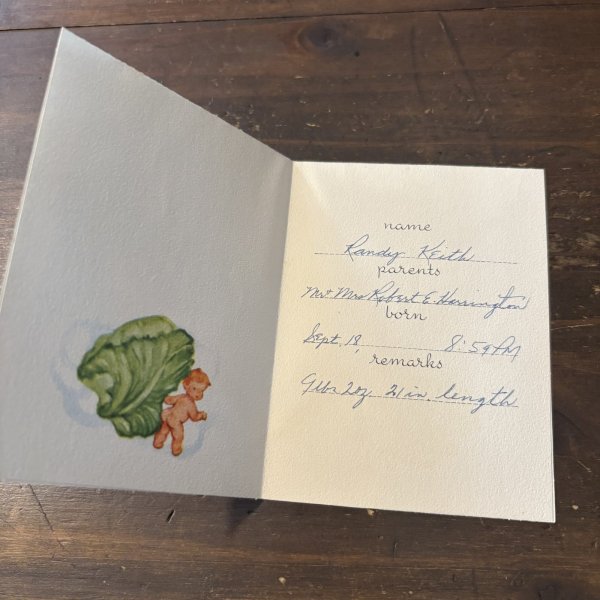 name
Randy Keith
parents
Mr + Mrs Robert E Harrington
born
Sept. 18, 8:59 PM
remarks
9 lbs 2 oz, 21 in. length